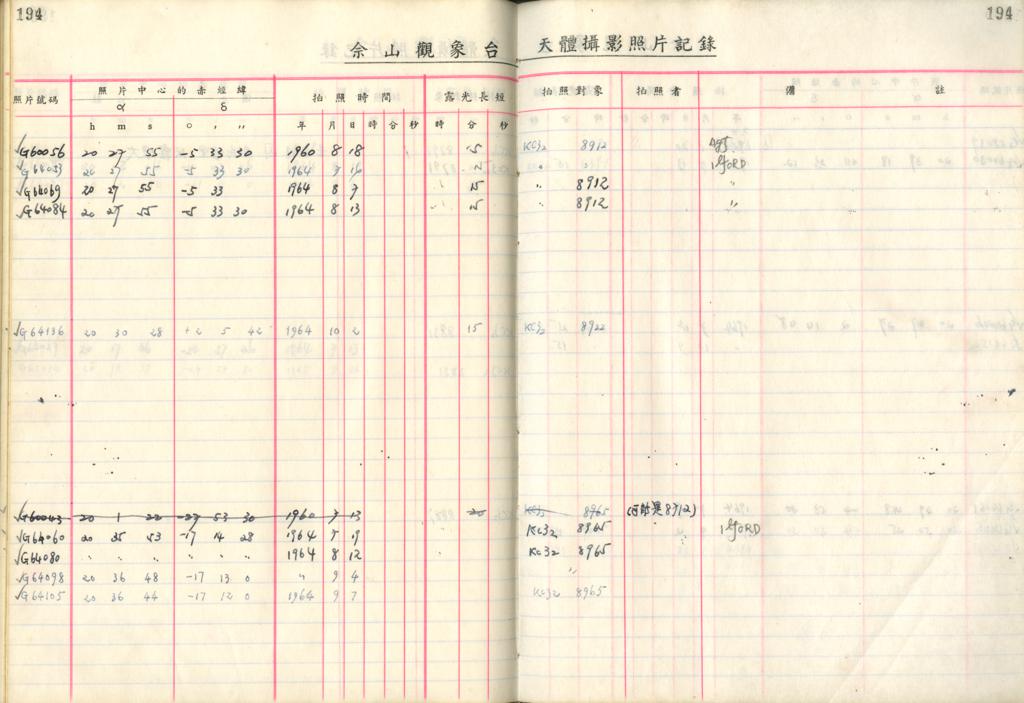 194
194
佘山觀象台 天體攝影照片記錄
照片號碼 照片中心的赤經緯 拍照時間 露光長短 拍照對象 拍照者 備註
α δ
h m s ° ′ ″ 年 月 日 時 分 秒 時 分 秒
√G60056 20 27 55 -5 33 30 1960 8 18 15 KC32 8912
√G64039 20 27 55 -5 33 30 1964 7 16 15 〃 〃 ILFORD
√G64069 20 27 55 -5 33 1964 8 7 〃 15 〃 8912 〃
√G64084 20 27 55 -5 33 30 1964 8 13 〃 15 〃 8912 〃
√G64136 20 30 28 +2 5 42 1964 10 2 15 KC32 8922
√G60043 20 1 22 -27 53 30 1960 7 13 20 KC32 8965 (可能是8712)
√G64060 20 35 53 -17 14 28 1964 7 19 KC32 8965 ILFORD
√G64080 〃 〃 〃 〃 〃 〃 1964 8 12 KC32 8965
√G64098 20 36 48 -17 13 0 〃 9 4 〃
√G64105 20 36 44 -17 12 0 1964 9 7 KC32 8965